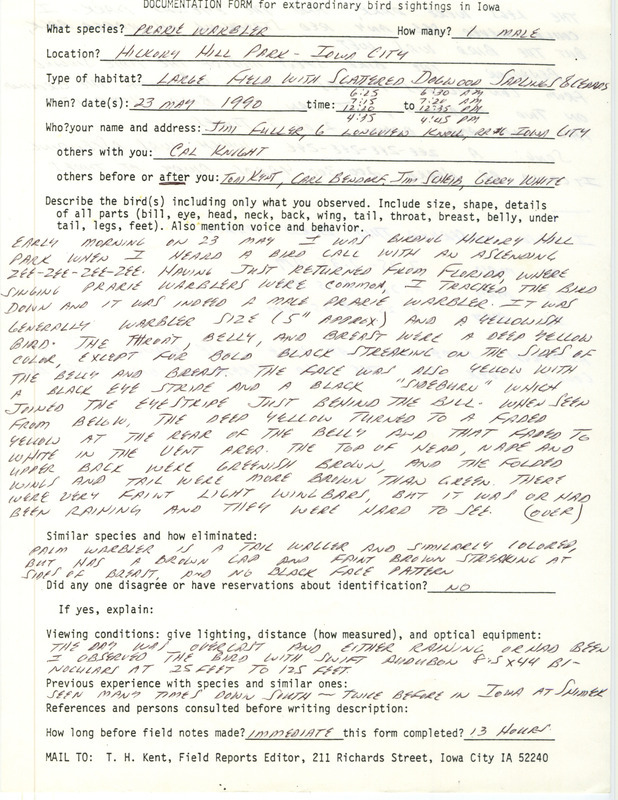 DOCUMENTATION FORM for extraordinary bird sightings in Iowa
What species? PRARIE WARBLER How many? 1 MALE
Location? HICKORY HILL PARK - IOWA CITY
Type of habitat? LARGE FIELD WITH SCATTERED DOGWOOD SAPLINGS & CEDARS
6:25 6:30 AM
7:15 7:20 AM
When? date(s): 23 MAY 1990 time: 12:20 to 12:35 PM
4:35 4:45 PM
Who?your name and address: JIM FULLER, 6 LONGVIEW KNOLL, RR#6 IOWA CITY
others with you: CAL KNIGHT
others before or after you: TOM KENT, CARL BENDORF, JIM SCHEIB, GERRY WHITE
Describe the bird(s) including only what you observed. Include size, shape, details
of all parts (bill, eye, head, neck, back, wing, tail, throat, breast, belly, under
tail, legs, feet). Also mention voice and behavior.
EARLY MORNING ON 23 MAY I WAS BIRDING HICKORY HILL
PARK WHEN I HEARD A BIRD CALL WITH AN ASCENDING
ZEE-ZEE-ZEE-ZEE. HAVING JUST RETURNED FROM FLORIDA, WHERE
SINGING PRARIE WARBLERS WERE COMMON, I TRACKED THE BIRD
DOWN AND IT WAS INDEED A MALE PRARIE WARBLER. IT WAS
GENERALLY WARBLER SIZE (5" APPROX) AND A YELLOWISH
BIRD. THE THROAT, BELLY, AND BREAST WERE A DEEP YELLOW
COLOR, EXCEPT FOR BOLD BLACK STREAKING ON THE SIDES OF
THE BELLY AND BREAST. THE FACE WAS ALSO YELLOW WITH
A BLACK EYE STRIPE AND A BLACK "SIDEBURN" WHICH
JOINED THE EYESTRIPE JUST BEHIND THE BILL. WHEN SEEN
FROM BELOW, THE DEEP YELLOW TURNED TO A FADED
YELLOW AT THE REAR OF THE BELLY AND THAT FADED TO
WHITE IN THE VENT AREA. THE TOP OF HEAD, NAPE AND
UPPER BACK WERE GREENISH BROWN, AND THE FOLDED
WINGS AND TAIL WERE MORE BROWN THAN GREEN. THERE
WERE VERY FAINT LIGHT WINGBARS, BUT IT WAS OR HAD
BEEN RAINING AND THEY WERE HARD TO SEE. (OVER)
Similar species and how eliminated:
PALM WARBLER IS A TAIL WAGGER AND SIMILARLY COLORED,
BUT HAS A BROWN CAP AND FAINT BROWN STREAKING AT
SIDES OF BREAST, AND NO BLACK FACE PATTERN
Did any one disagree or have reservations about identification? NO
If yes, explain:
Viewing conditions: give lighting, distance (how measured), and optical equipment:
THE DAY WAS OVERCAST AND EITHER RAINING OR HAD BEEN
I OBSERVED THE BIRD WITH SWIFT AUDUBON 8.5 x 44 BI-
NOCULARS AT 25 FEET TO 125 FEET.
Previous experience with species and similar ones:
SEEN MANY TIMES DOWN SOUTH - TWICE BEFORE IN IOWA AT SHIMEK
References and persons consulted before writing description:
How long before field notes made? IMMEDIATE this form completed? 13 HOURS
MAIL TO: T. H. Kent, Field Reports Editor, 211 Richards Street, Iowa City IA 52240